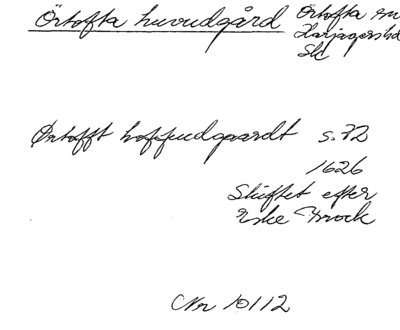 Örtofta huvudgård
Örtofta sn
Harjagers hd
Sk
Ørtofft hoffuudgaardt s. 72
1626
Skiftet efter
Eske Brock
Nr 10112